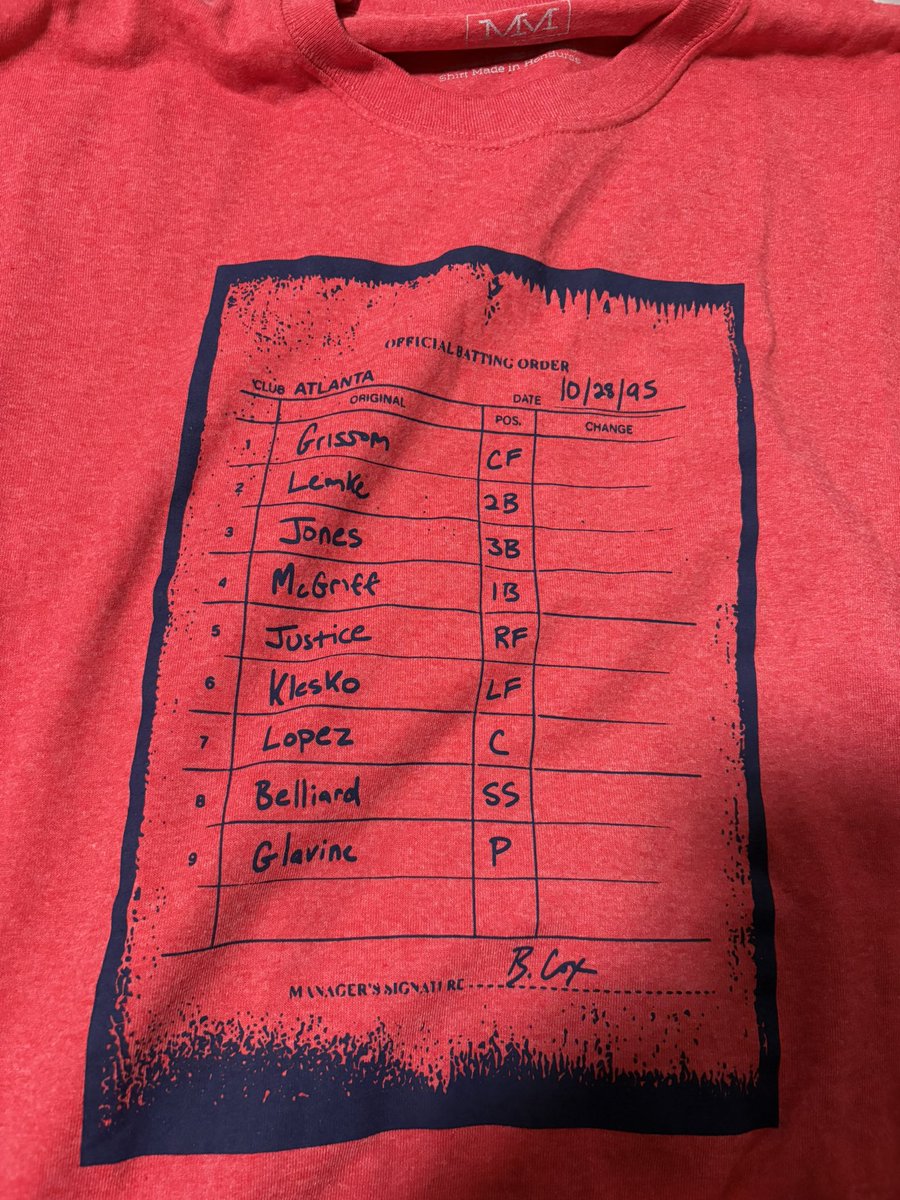 MM
Shirt Made in Honduras
OFFICIAL BATTING ORDER
CLUB ATLANTA DATE 10/28/95
ORIGINAL POS. CHANGE
1 Grissom CF
2 Lemke 2B
3 Jones 3B
4 McGriff 1B
5 Justice RF
6 Klesko LF
7 Lopez C
8 Belliard SS
9 Glavine P
MANAGER'S SIGNATURE B. Cox